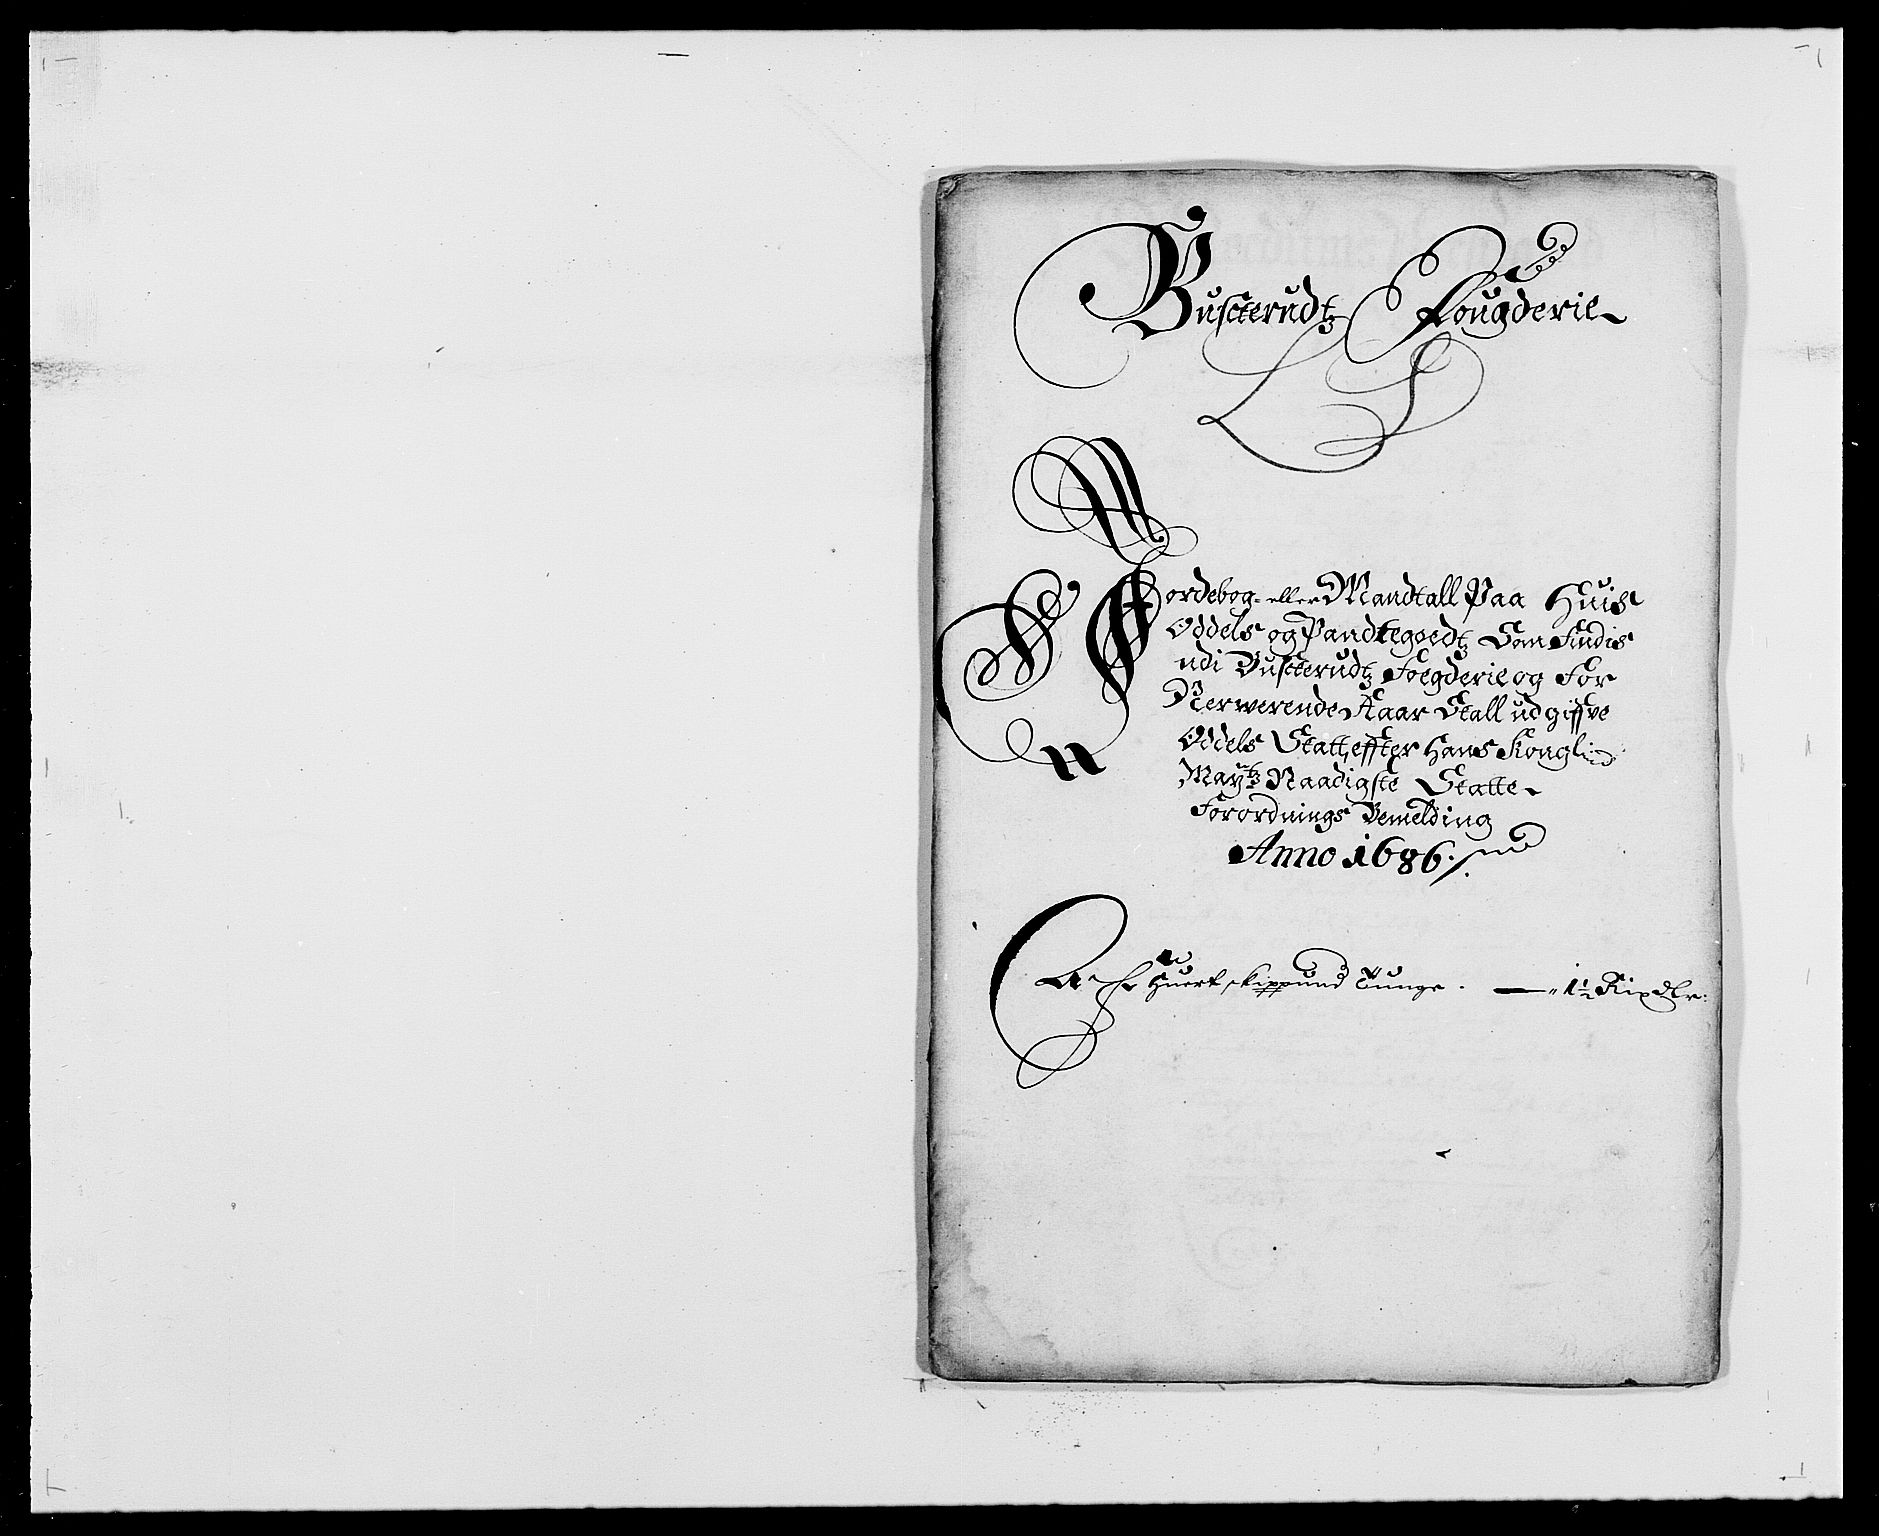 Buscterudtz Fougderie
Jordebog eller Mandtall Paa Huis
Oddels og Pandtegoedtz Som Findis
udi Buscterudtz Foegderie og For
Nerwerende Aaar Skall udgiffve
Oddels Skatt, effter Hans Kongl:
Maytz Naadigste Skatte
Forordnings Bemelding
Anno 1686 ./.
Af Huert skippund Tunge . — " 1½ Rixdlr: